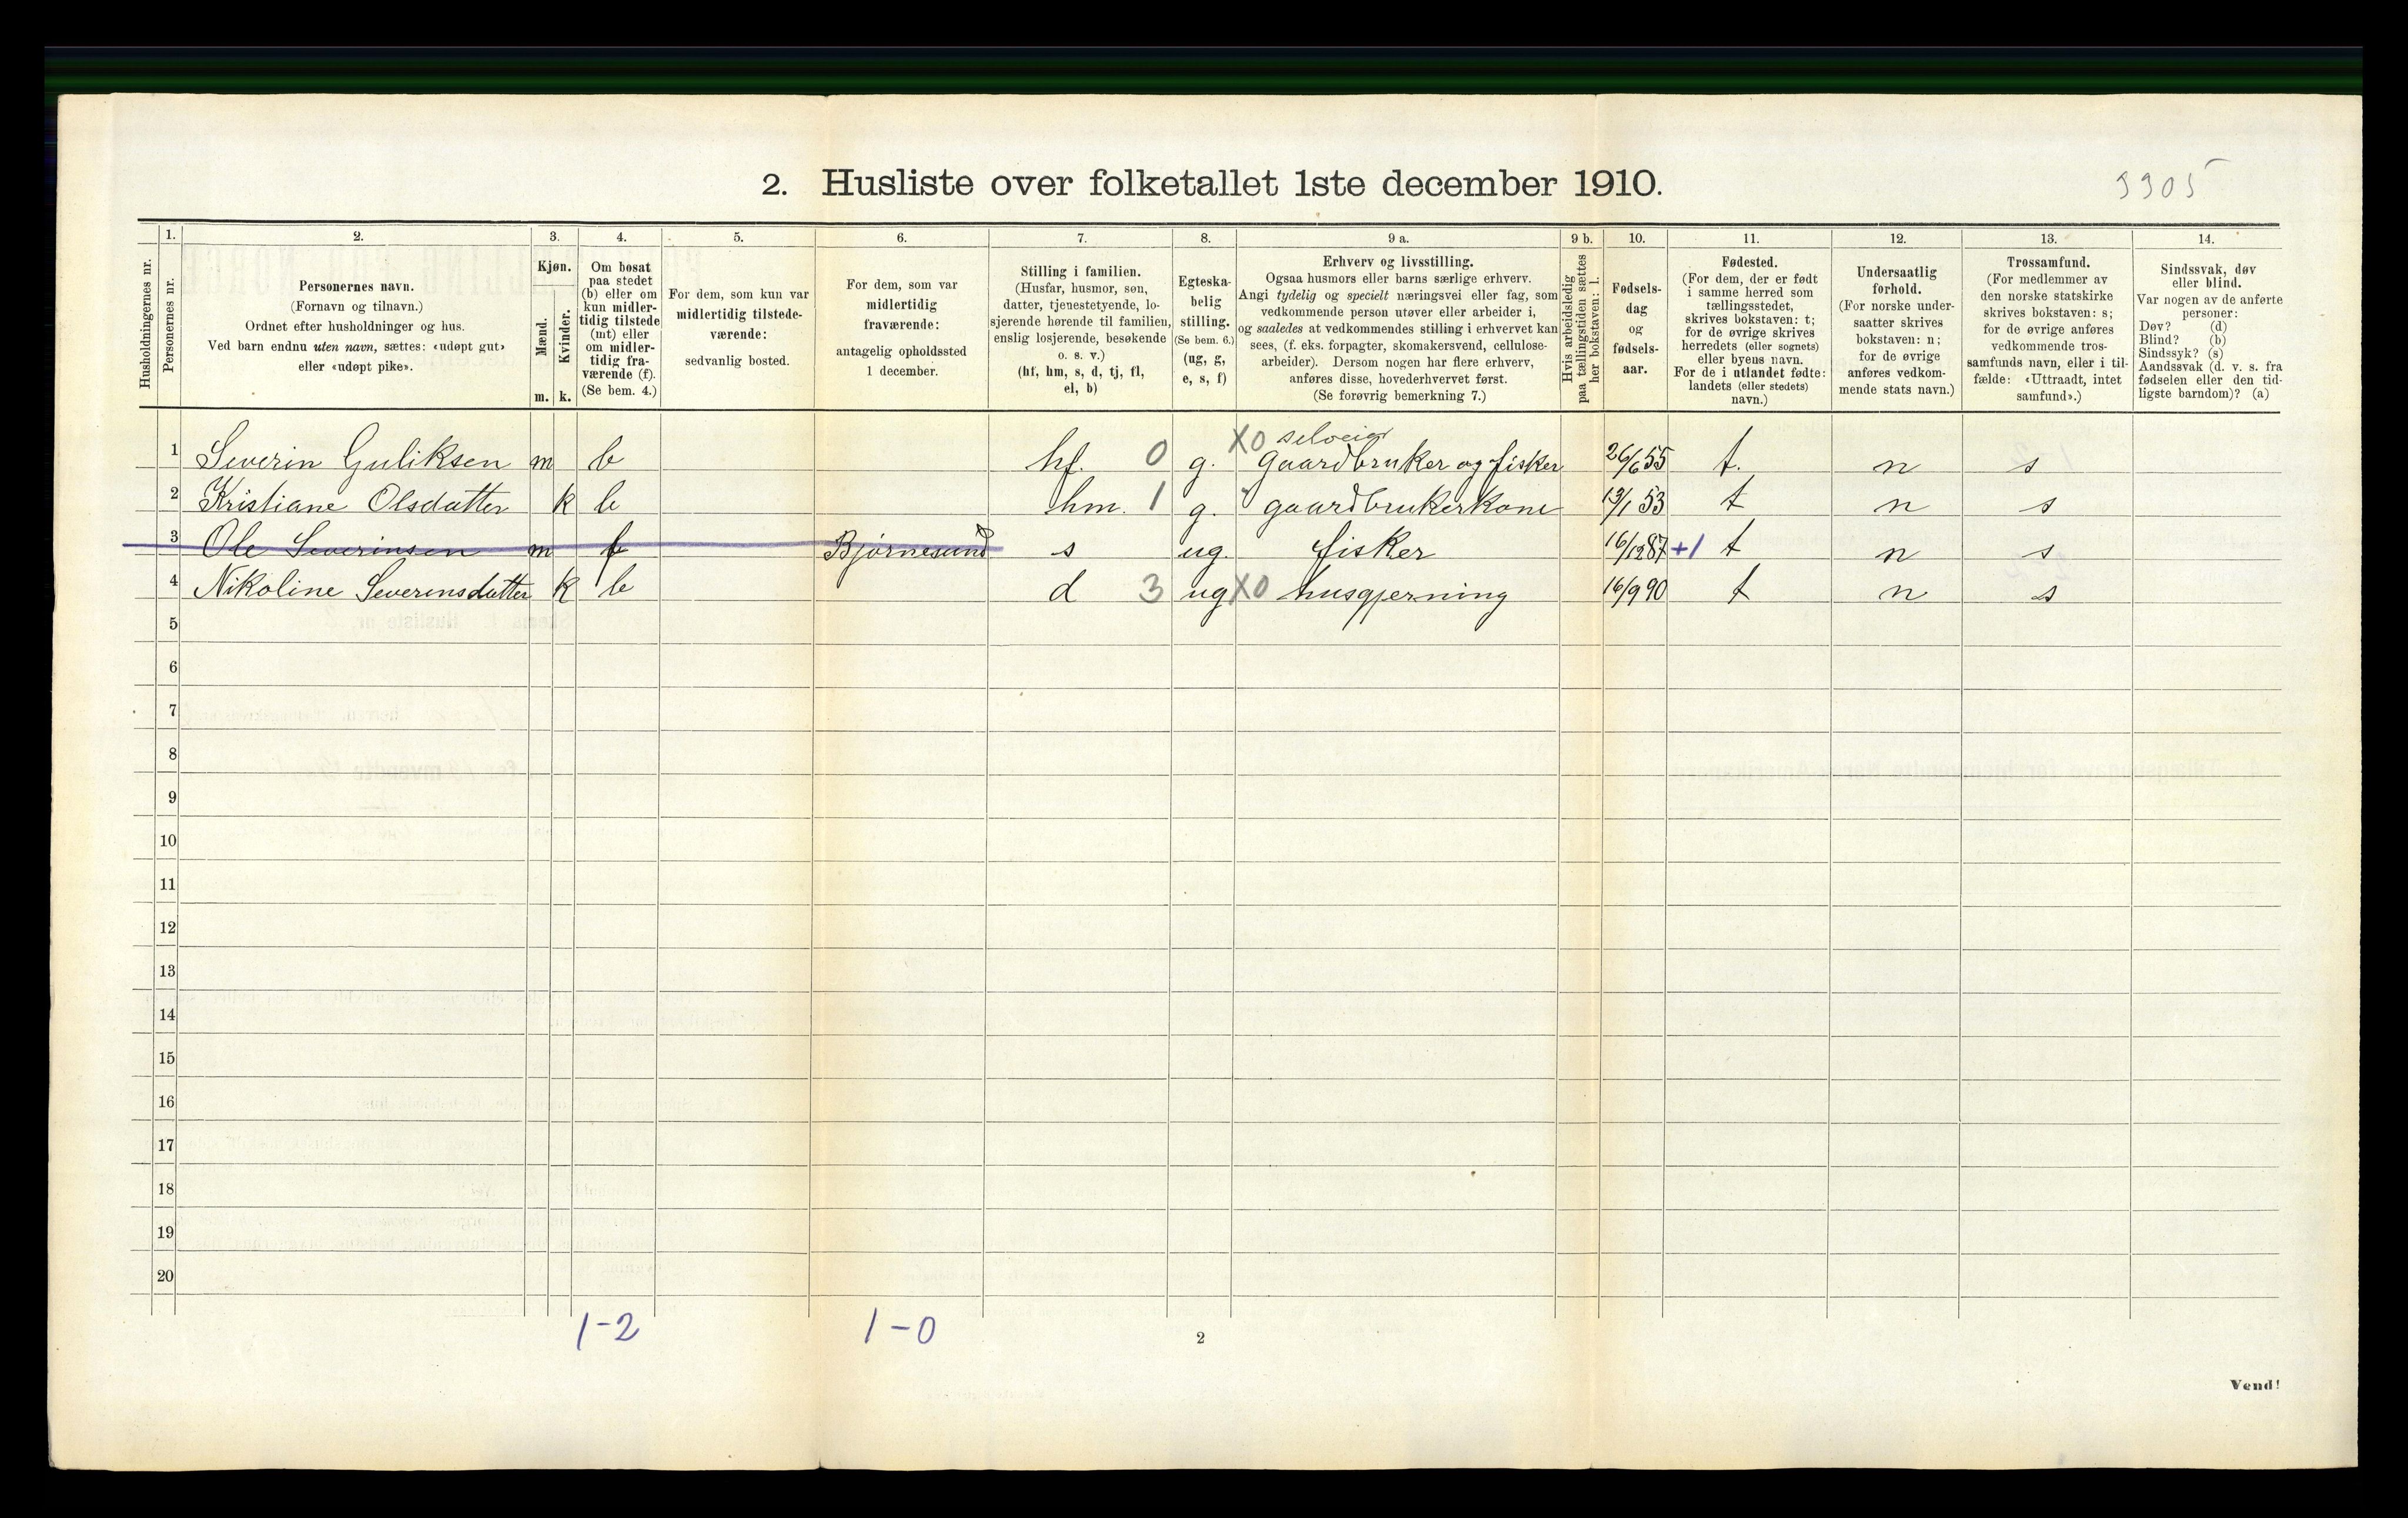 2. Husliste over folketallet 1ste december 1910.
3305
Husholdningernes nr.
1.
Personernes nr.
2.
Personernes navn.
(Fornavn og tilnavn.)
Ordnet efter husholdninger og hus.
Ved barn endnu uten navn, sættes: «udøpt gut»
eller «udøpt pike».
3.
Kjøn.
Mænd.
Kvinder.
m. k.
4.
Om bosat
paa stedet
(b) eller om
kun midler-
tidig tilstede
(mt) eller
om midler-
tidig fra-
værende (f).
(Se bem. 4.)
5.
For dem, som kun var
midlertidig tilstede-
værende:
sedvanlig bosted.
6.
For dem, som var
midlertidig
fraværende:
antagelig opholdssted
1 december.
7.
Stilling i familien.
(Husfar, husmor, søn,
datter, tjenestetyende, lo-
sjerende hørende til familien,
enslig losjerende, besøkende
o. s. v.)
(hf, hm, s, d, tj, fl,
el, b)
8.
Egteska-
belig
stilling.
(Se bem. 6.)
(ug, g,
e, s, f)
9 a.
Erhverv og livsstilling.
Ogsaa husmors eller barns særlige erhverv.
Angi tydelig og specielt næringsvei eller fag, som
vedkommende person utøver eller arbeider i,
og saaledes at vedkommendes stilling i erhvervet kan
sees, (f. eks. forpagter, skomakersvend, cellulose-
arbeider). Dersom nogen har flere erhverv,
anføres disse, hovederhvervet først.
(Se forøvrig bemerkning 7.)
9 b.
Hvis arbeidsledig
paa tællingstiden sættes
her bokstaven: l.
10.
Fødsels-
dag
og
fødsels-
aar.
11.
Fødested.
(For dem, der er født
i samme herred som
tællingsstedet,
skrives bokstaven: t;
for de øvrige skrives
herredets (eller sognets)
eller byens navn.
For de i utlandet fødte:
landets (eller stedets)
navn.)
12.
Undersaatlig
forhold.
(For norske under-
saatter skrives
bokstaven: n;
for de øvrige
anføres vedkom-
mende stats navn.)
13.
Trossamfund.
(For medlemmer av
den norske statskirke
skrives bokstaven: s;
for de øvrige anføres
vedkommende tros-
samfunds navn, eller i til-
fælde: «Uttraadt, intet
samfund».)
14.
Sindssvak, døv
eller blind.
Var nogen av de anførte
personer:
Døv? (d)
Blind? (b)
Sindssyk? (s)
Aandssvak (d. v. s. fra
fødselen eller den tid-
ligste barndom)? (a)
X0 selveier
1 Severin Guliksen m b hf. 0 g. gaardbruker og fisker 26/6 55 t. n s
2 Kristiane Olsdatter k b hm. 1 g. gaardbrukerkone 13/1 53 t n s
3 Ole Severinsen m f Bjørnesund s ug. fisker 16/12 87 +1 t n s
4 Nikoline Severinsdatter k b d 3 ug X0 husgjerning 16/9 90 t n s
5
6
7
8
9
10
11
12
13
14
15
16
17
18
19
20
1-2 1-0
2
Vend!